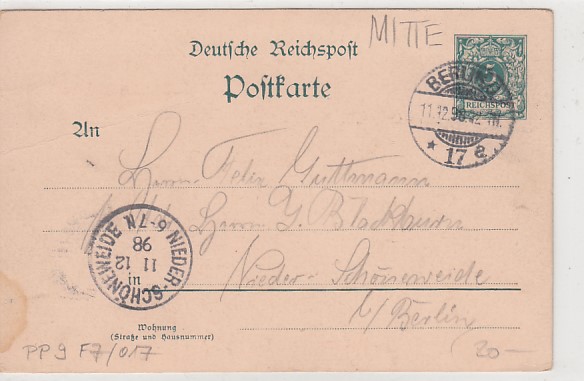 MITTE
Deutsche Reichspost
Postkarte
5
REICHSPOST
BERLIN
11.12.98
* 17 a.
An
Herrn Felix Guttmann
Herrn J. Blackburn
Nieder-Schöneweide
b/Berlin
NIEDER-SCHÖNEWEIDE
6-7N
98
11 12
Wohnung
(Straße und Hausnummer)
PP 9 F7/017
20-